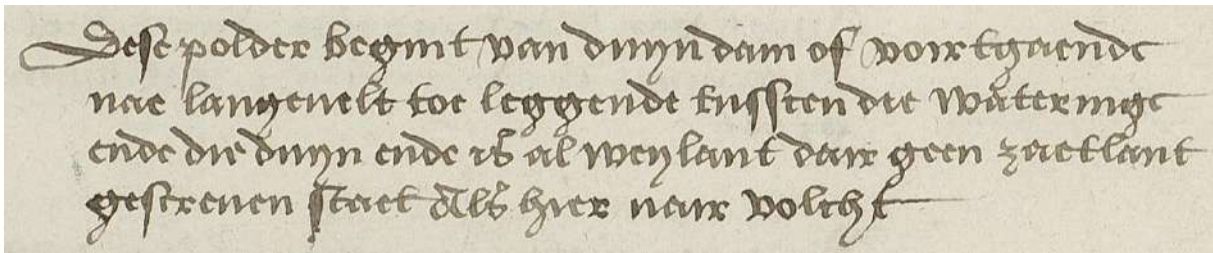 Dese polder begint van duyndam of voirtgaende
nae langevelt toe leggende tusscen die wateringe
ende die duyn ende is al weylant dair geen zaetlant
gescreven staet Als hier nair volcht